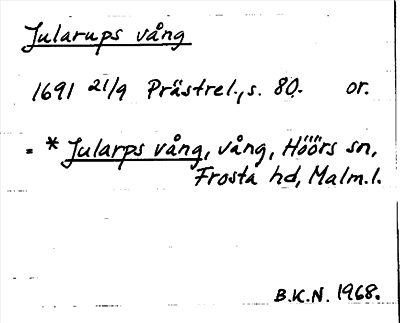 Jularups vång
1691 21/9 Prästrel., s. 80. or.
= * Jularps vång, vång, Höörs sn,
Frosta hd, Malm. l.
B.K.N. 1968.